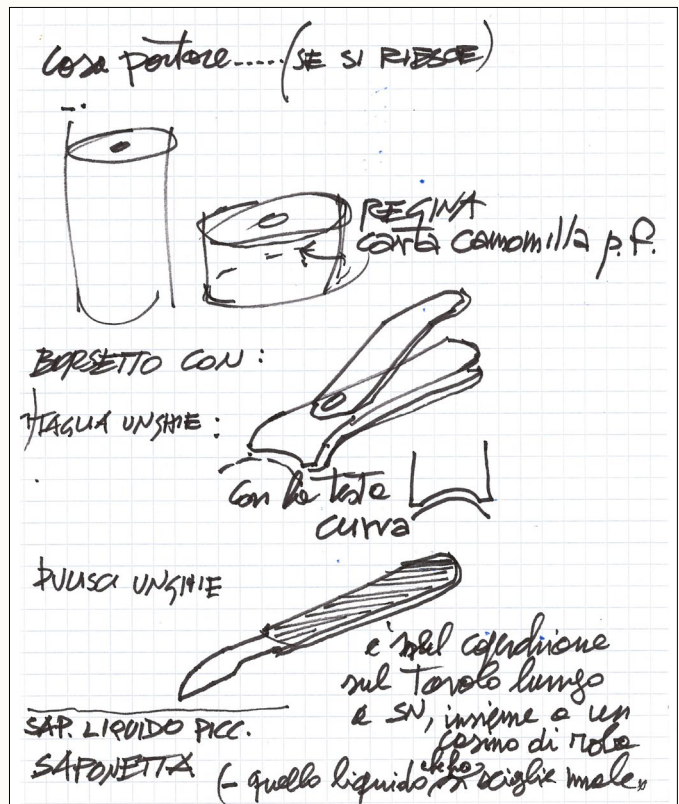 Cosa portare.....(SE SI RIESCE)
REGINA
carta camomilla p.f.
BORSETTO CON :
TAGLIA UNGHIE :
con la testa
curva
PULISCI UNGHIE
è nel
sul Tavolo lungo
a SN, insieme a un
casino di roba
SAP. LIQUIDO PICC.
SAPONETTA
(- quello liquido che ho si scioglie male